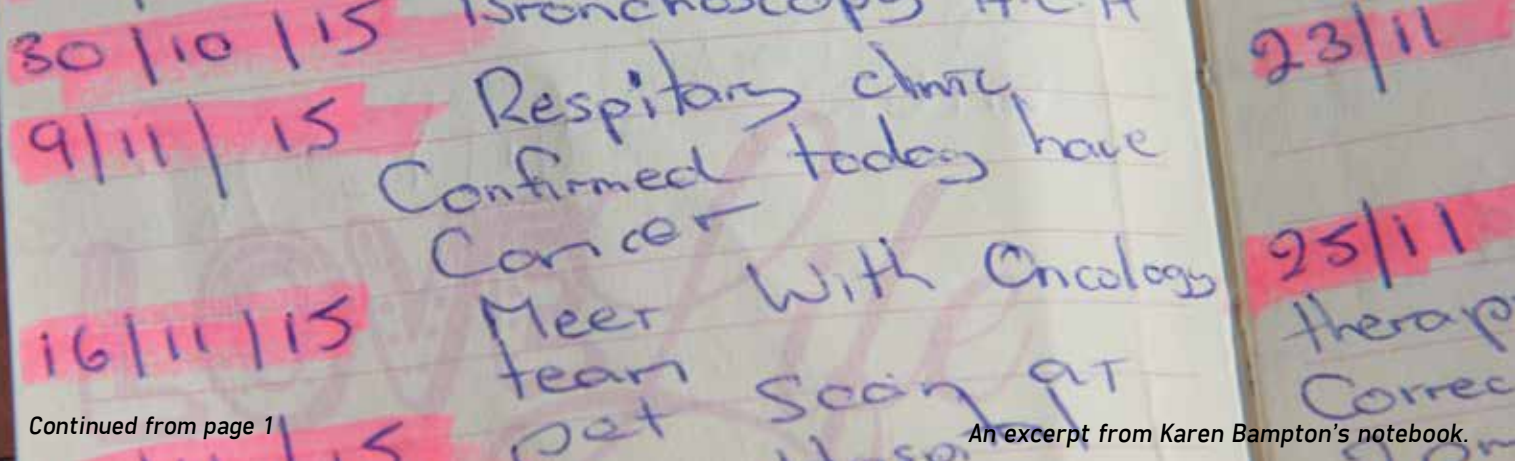 30/10/15 Bronchoscopy
9/11/15 Respitary clinic,
Confirmed today have
Cancer
16/11/15 Meer With Oncology
team
pet Scan at
23/11
25/11
therap
Correc
LOVE life
Continued from page 1
An excerpt from Karen Bampton's notebook.